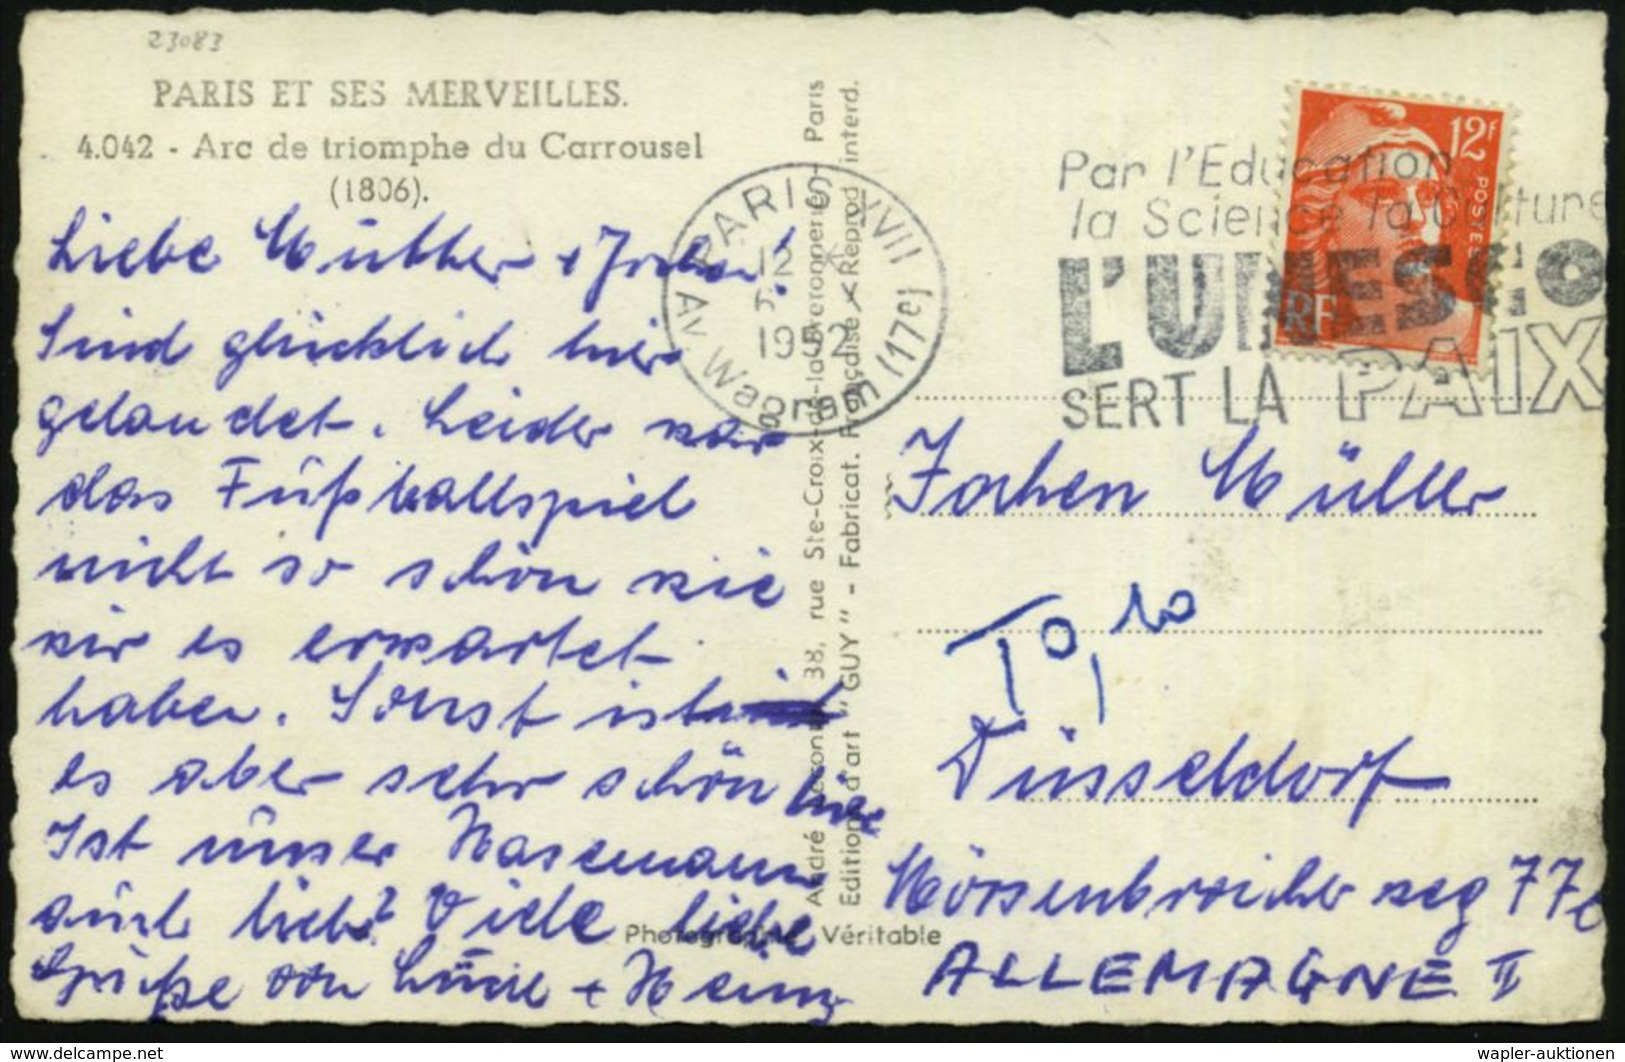 23083
PARIS ET SES MERVEILLES.
4.042 - Arc de triomphe du Carrousel
(1806).
Liebe Mutter + Jochen!
Sind glücklich hier
gelandet. Leider war
das Fußballspiel
nicht so schön wie
wir es erwartet
haben. Sonst ist
es aber sehr schön hier
Ist unser Hasemann
auch lieb? Viele liebe
Grüße von + Heinz
André Leconte, 38, rue Ste-Croix-de-la-Bretonnerie - Paris
Editions d'art "GUY" - Fabricat. Française - Reprod. interd.
Photographie Véritable
PARIS XVII
12 H
1952
Av. Wagram (17e)
Par l'Education
la Science la Culture
L'UNESCO
SERT LA PAIX
12F
POSTES
RF
Jochen Müller
T 0,10
Düsseldorf
Mörsenbroicher weg 77c
ALLEMAGNE II
delcampe.net
wapler-auktionen